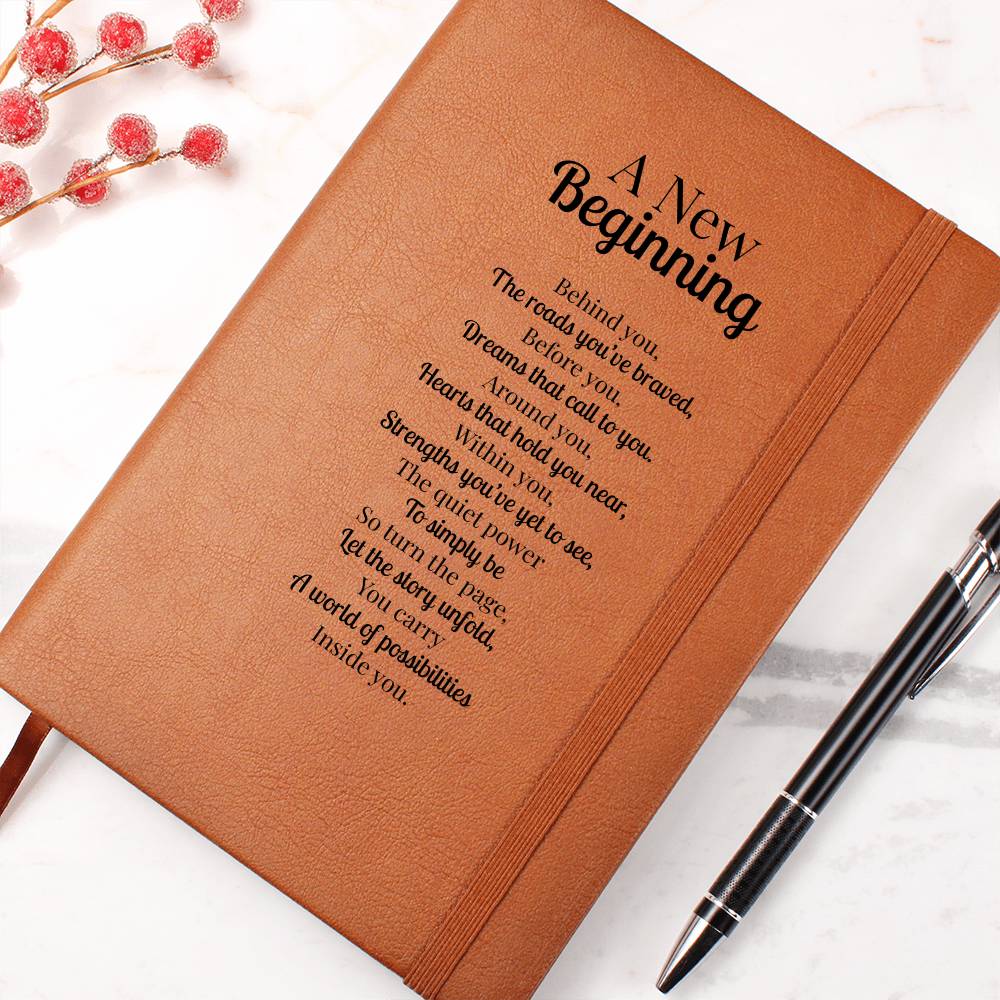 A New
Beginning
Behind you,
The roads you've braved,
Before you,
Dreams that call to you.
Around you,
Hearts that hold you near,
Within you,
Strengths you've yet to see,
The quiet power
To simply be
So turn the page,
Let the story unfold,
You carry
A world of possibilities
Inside you.